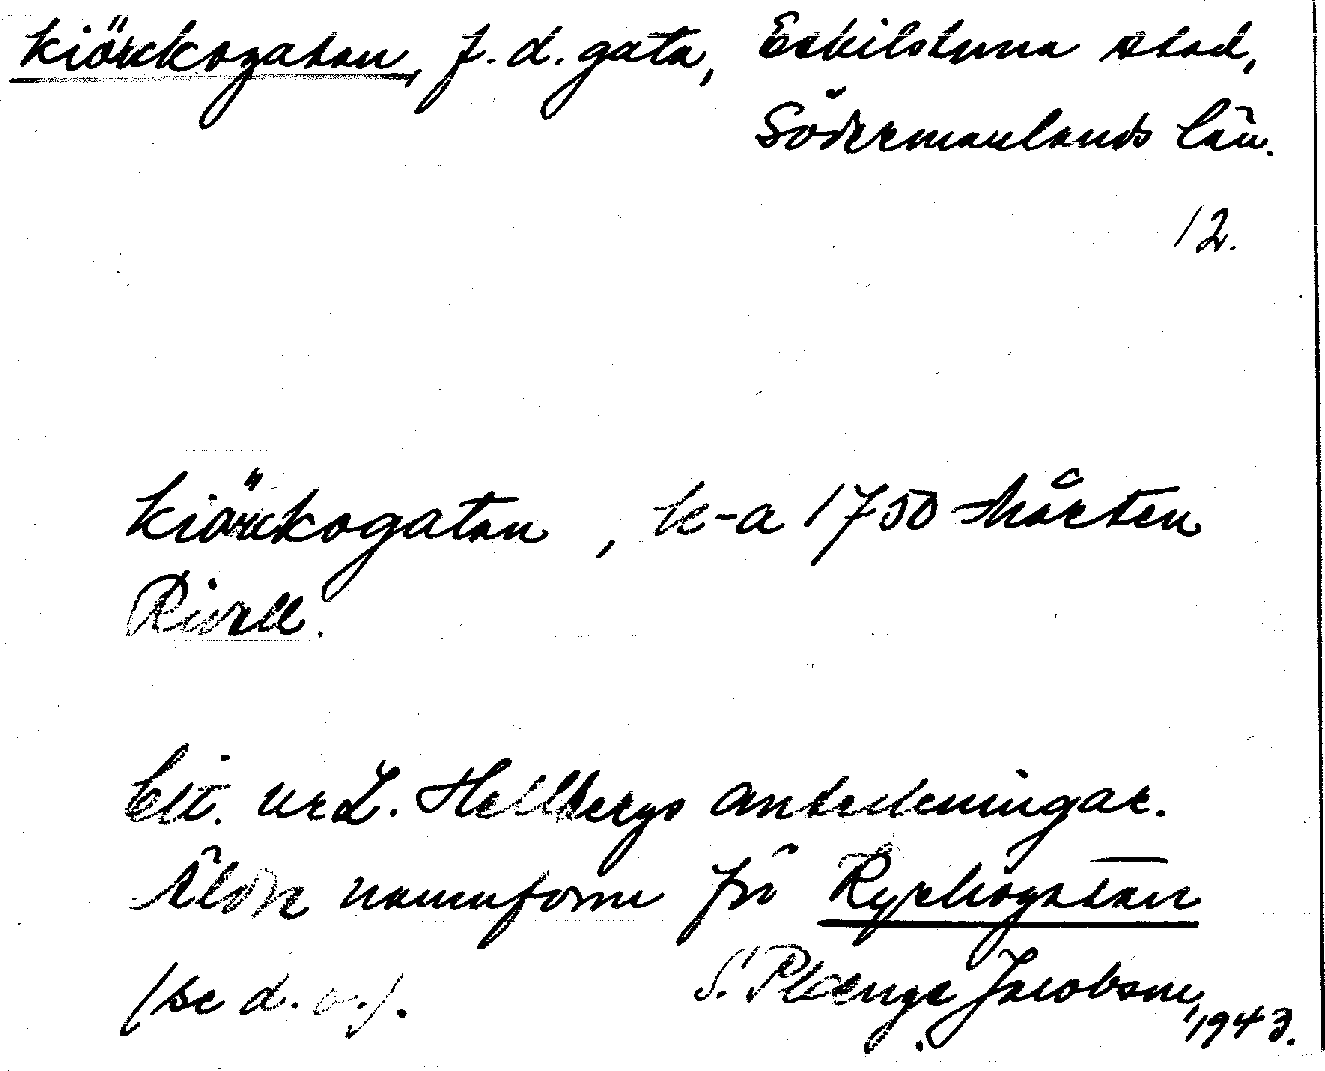 Kiörckogatan, f.d. gata, Eskilstuna stad,
Södermanlands län.
12.
Kiörckogatan, k-a 1750 Mårten
Rivell.
Cit. ur L. Hellbergs anteckningar.
Äldre namnform för Kyrkogatan
(se d. o.).
S. Plænge Jacobson, 1943.